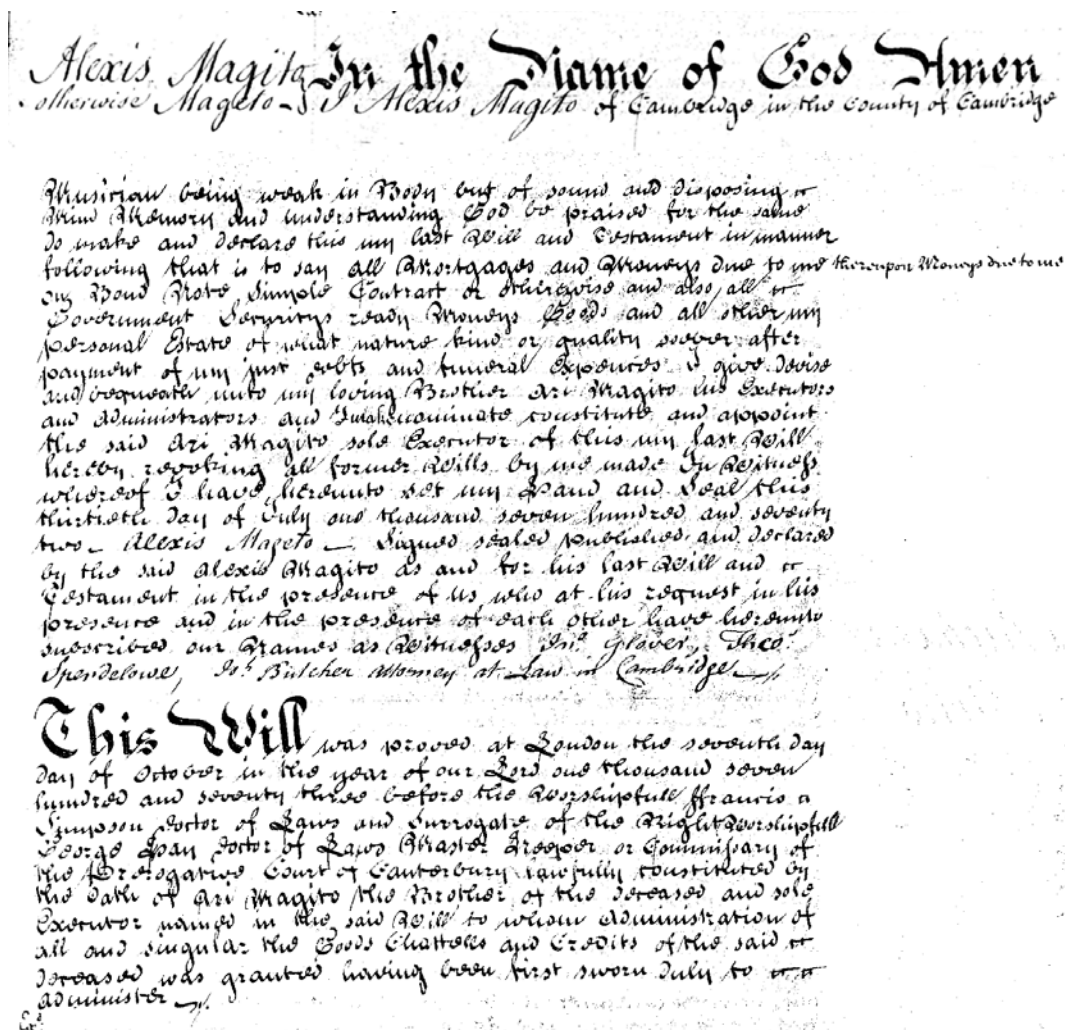 Alexis Magito In the Name of God Amen
otherwise Mageto I Alexis Magito of Cambridge in the County of Cambridge
Musician being weak in Body but of sound and disposing
Mind Memory and understanding God be praised for the same
do make and declare this my last Will and Testament in manner
following that is to say all Mortgages and Moneys due to me thereupon Moneys due to me
on Bond Note Simple Contract or otherwise and also all
Government Securitys ready Moneys Goods and all other my
personal Estate of what nature kind or quality soever after
payment of my just debts and funeral Expences I give devise
and bequeath unto my loving Brother Ari Magito his Executors
and Administrators and I make nominate constitute and appoint
the said Ari Magito sole Executor of this my last Will
hereby revoking all former Wills by me made In Witness
whereof I have hereunto set my Hand and Seal this
thirtieth day of July one thousand seven hundred and seventy
two – Alexis Mageto – Signed sealed published and declared
by the said Alexis Magito as and for his last Will and
Testament in the presence of us who at his request in his
presence and in the presence of each other have hereunto
subscribed our Names as Witnesses Jno. Glover, Theo.
Spendelowe, Jos. Butcher Attorney at Law in Cambridge
This Will was proved at London the seventh day
day of October in the year of our Lord one thousand seven
hundred and seventy three before the Worshipfull Ffrancis
Simpson Doctor of Laws and Surrogate of the Right Worshipfull
George Hay Doctor of Laws Master Keeper or Commissary of
the Prerogative Court of Canterbury lawfully constituted by
the Oath of Ari Magito the Brother of the deceased and sole
Executor named in the said Will to whom Administration of
all and singular the Goods Chattells and Credits of the said
deceased was granted having been first sworn duly to
administer